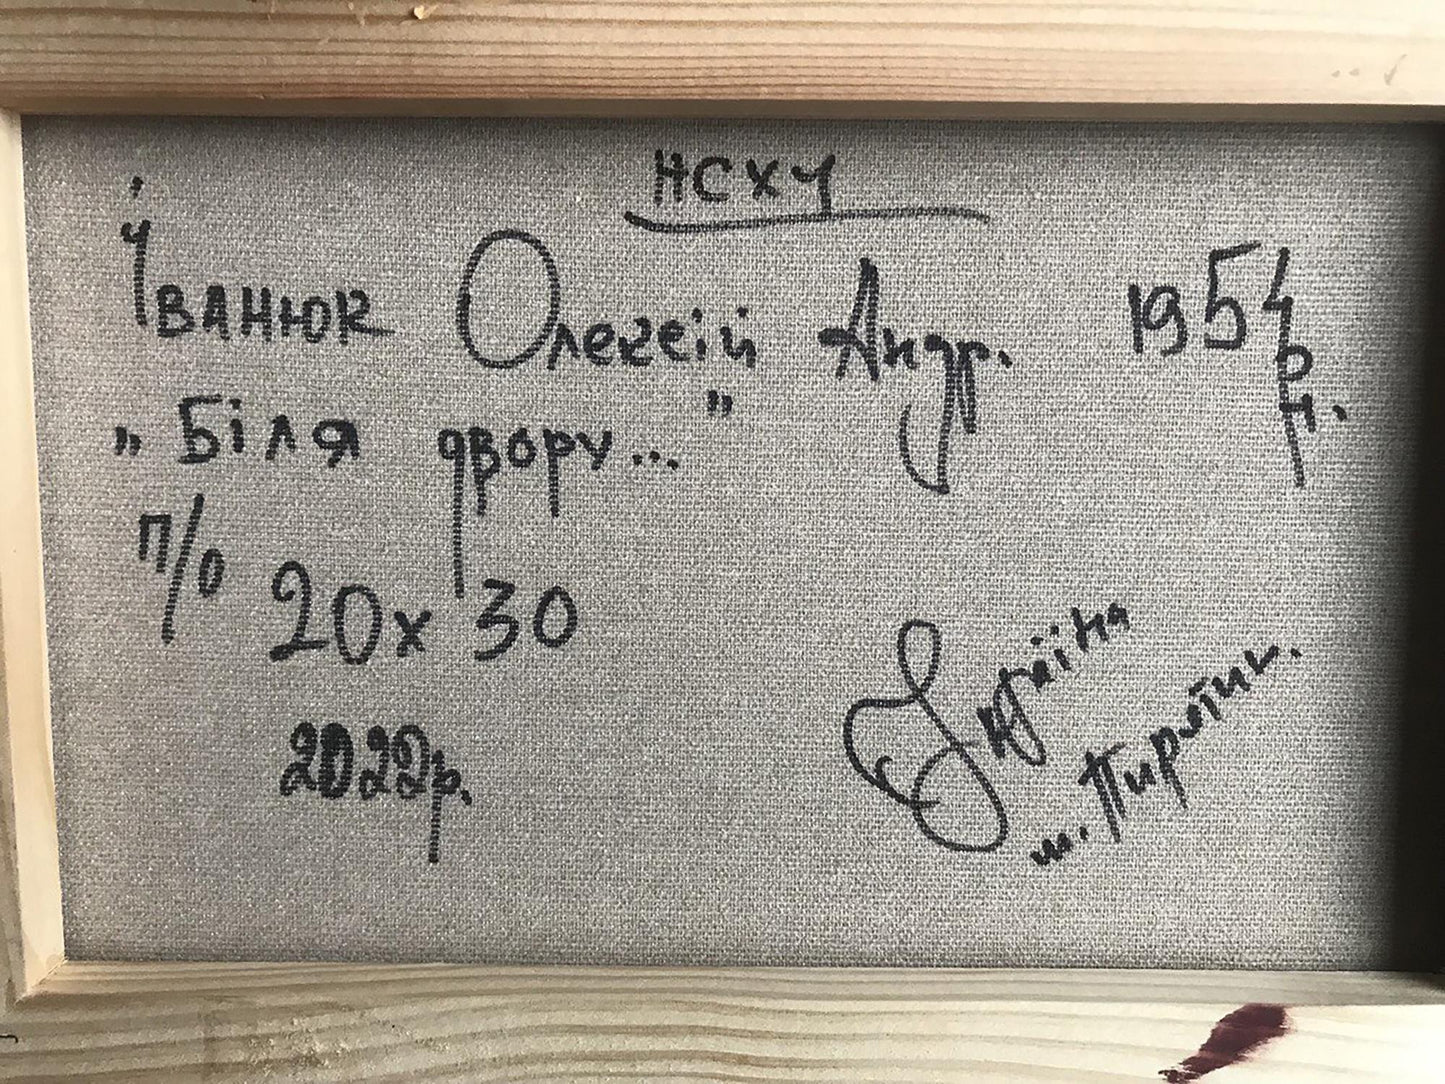 НСХУ
Іванюк Олексій Андр. 1954 р.н.
„Біля двору..."
п/о 20х30
2022р.
Україна
м. Пирятин.